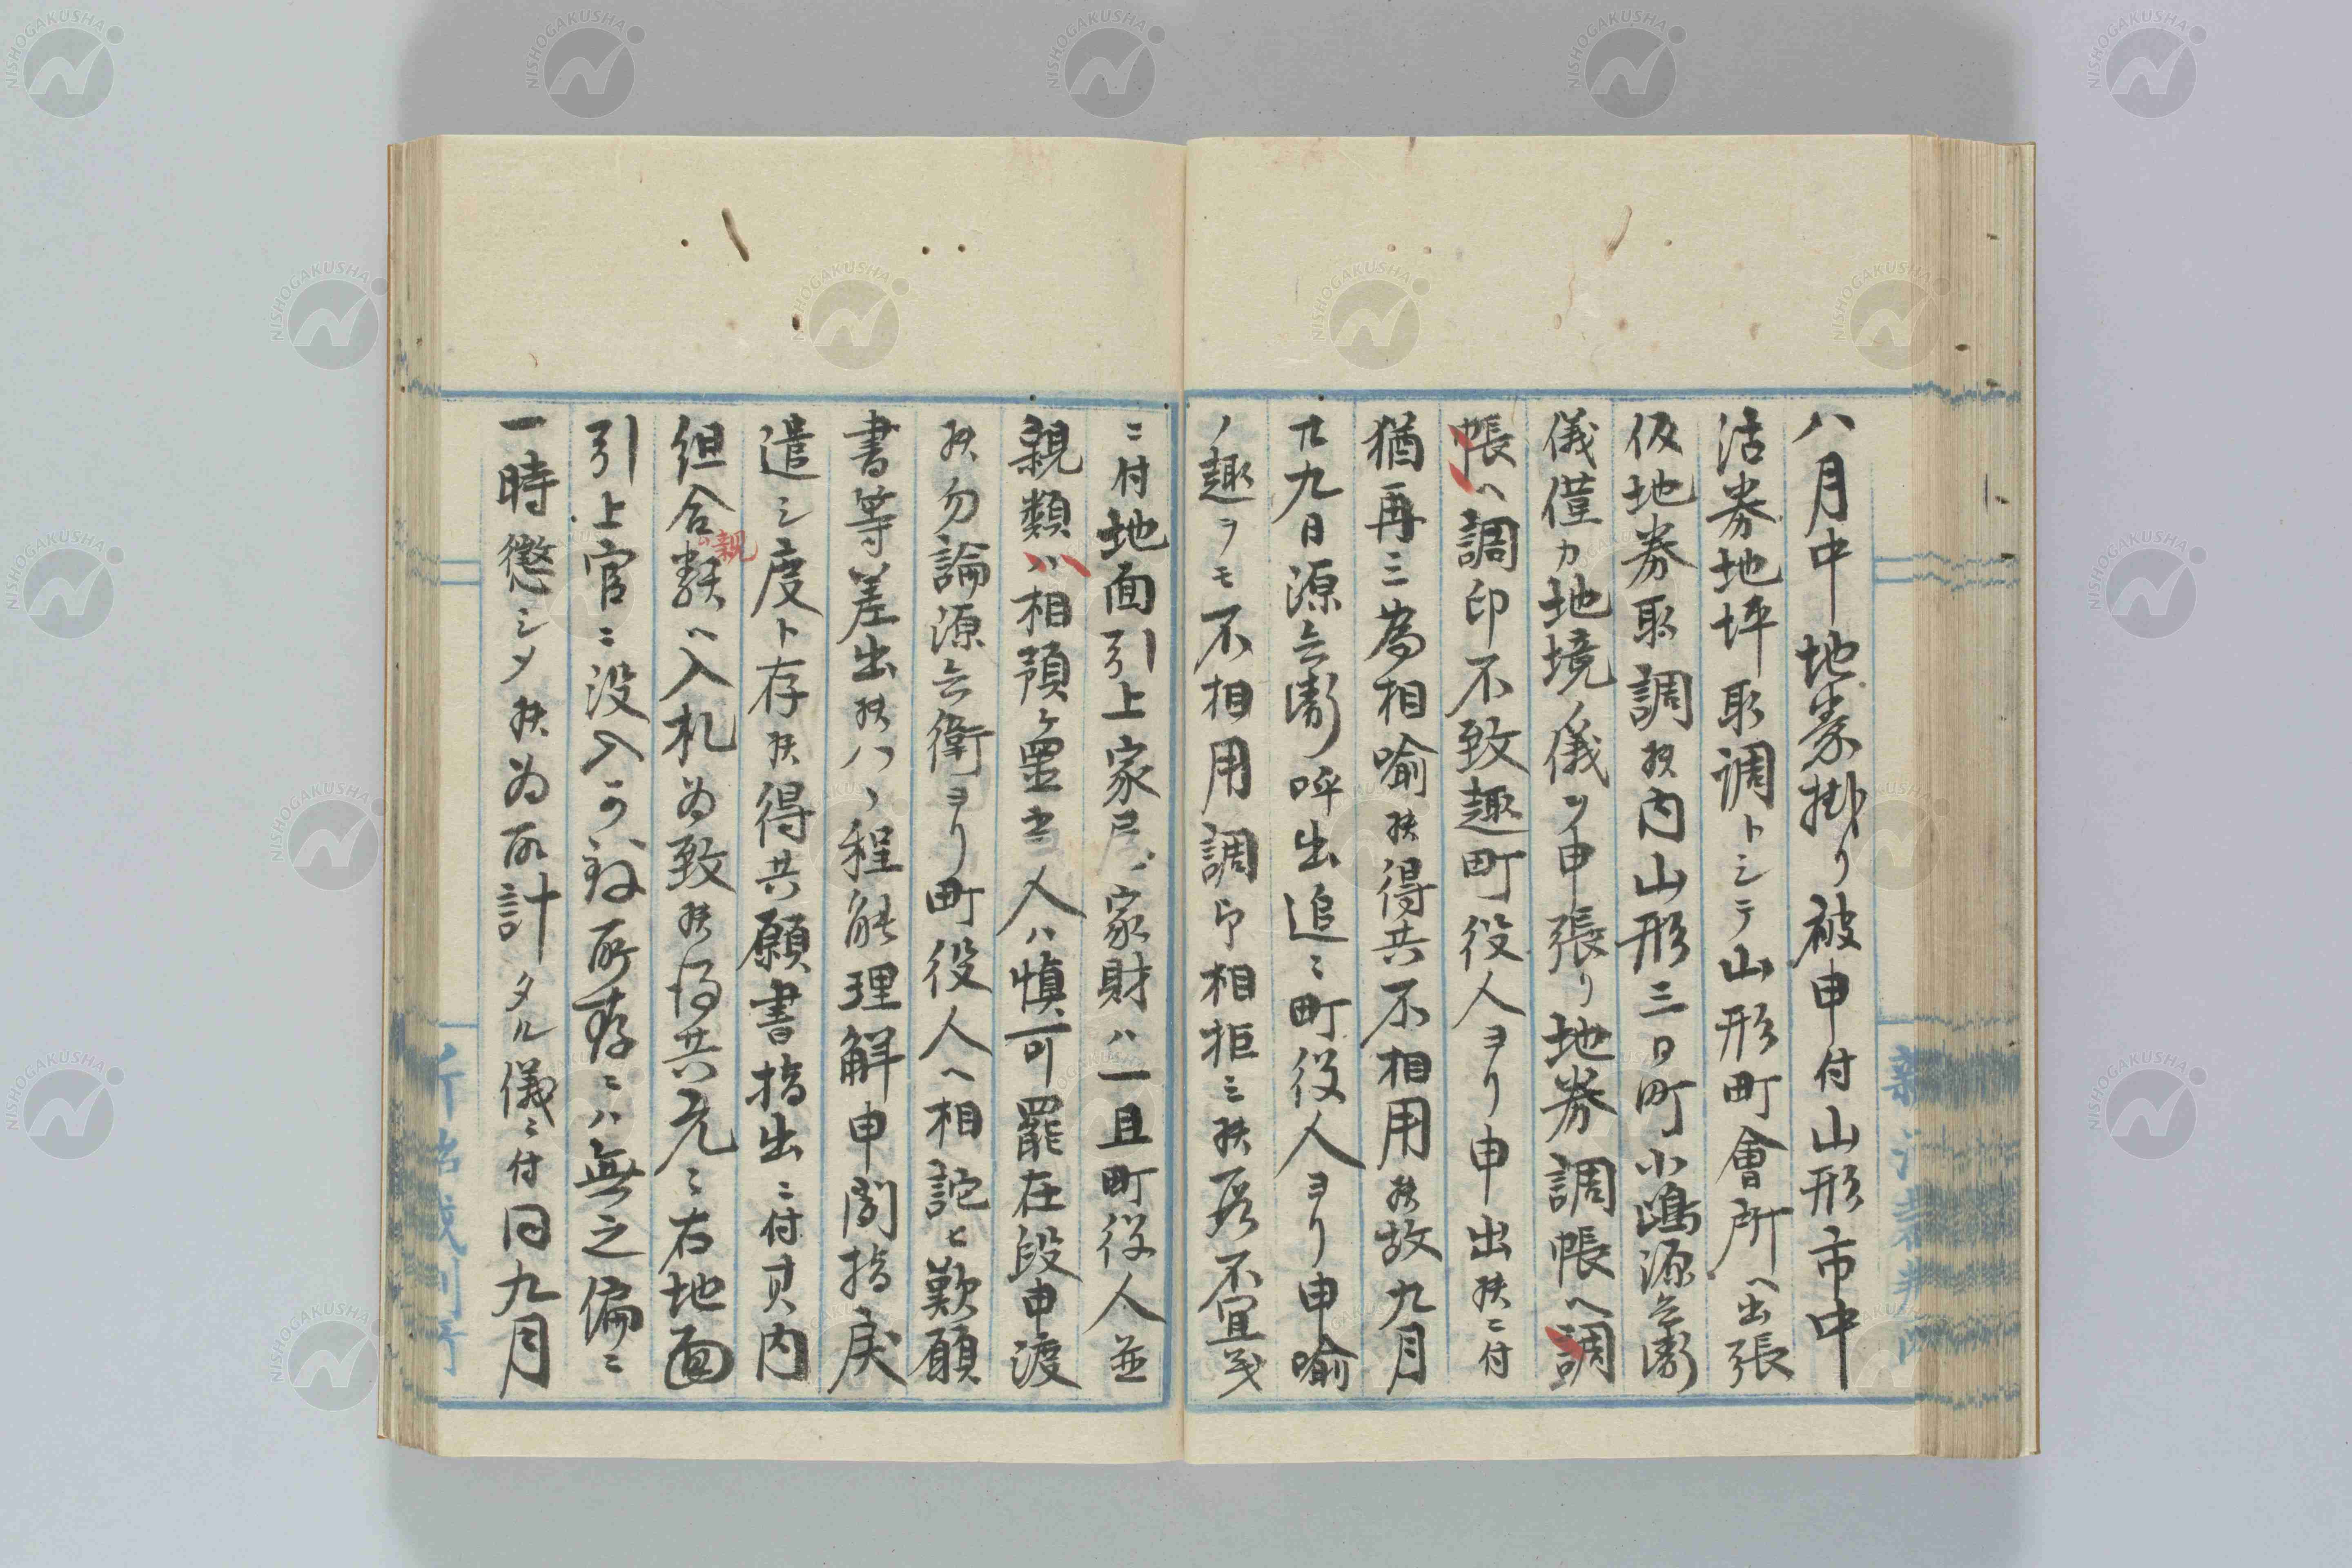 八月中地券掛リ被申付山形市中
沽券地坪取調トシテ山形町會所ヘ出張
仮地券取調候内山形三日町小嶋源兵衛
儀僅カ地境ノ儀ヲ申張リ地券調帳ヘ調
帳ヘ調印不致趣町役人ヨリ申出候ニ付
猶再三為相喩候得共不相用候故九月
廿九日源兵衛呼出追々町役人ヨリ申喩
ノ趣ヲモ不相用調印相拒ミ候段不宜
ニ付地面引上家尸家財ハ一且町役人並
親類ハ相預ケ置当人ハ慎可罷在段申渡
候勿論源兵衛ヨリ町役人ヘ相詫ヒ歎願
書等差出候ハヽ程能理解申聞指戻
遣シ度ト存候得共願書指出ニ付其内
組合親類ヘ入札為致候得共元々右地面
引上官ニ没入可致所存ニハ無之偏ニ
一時懲シメ候為取計タル儀ニ付同九月
NISHOGAKUSHA